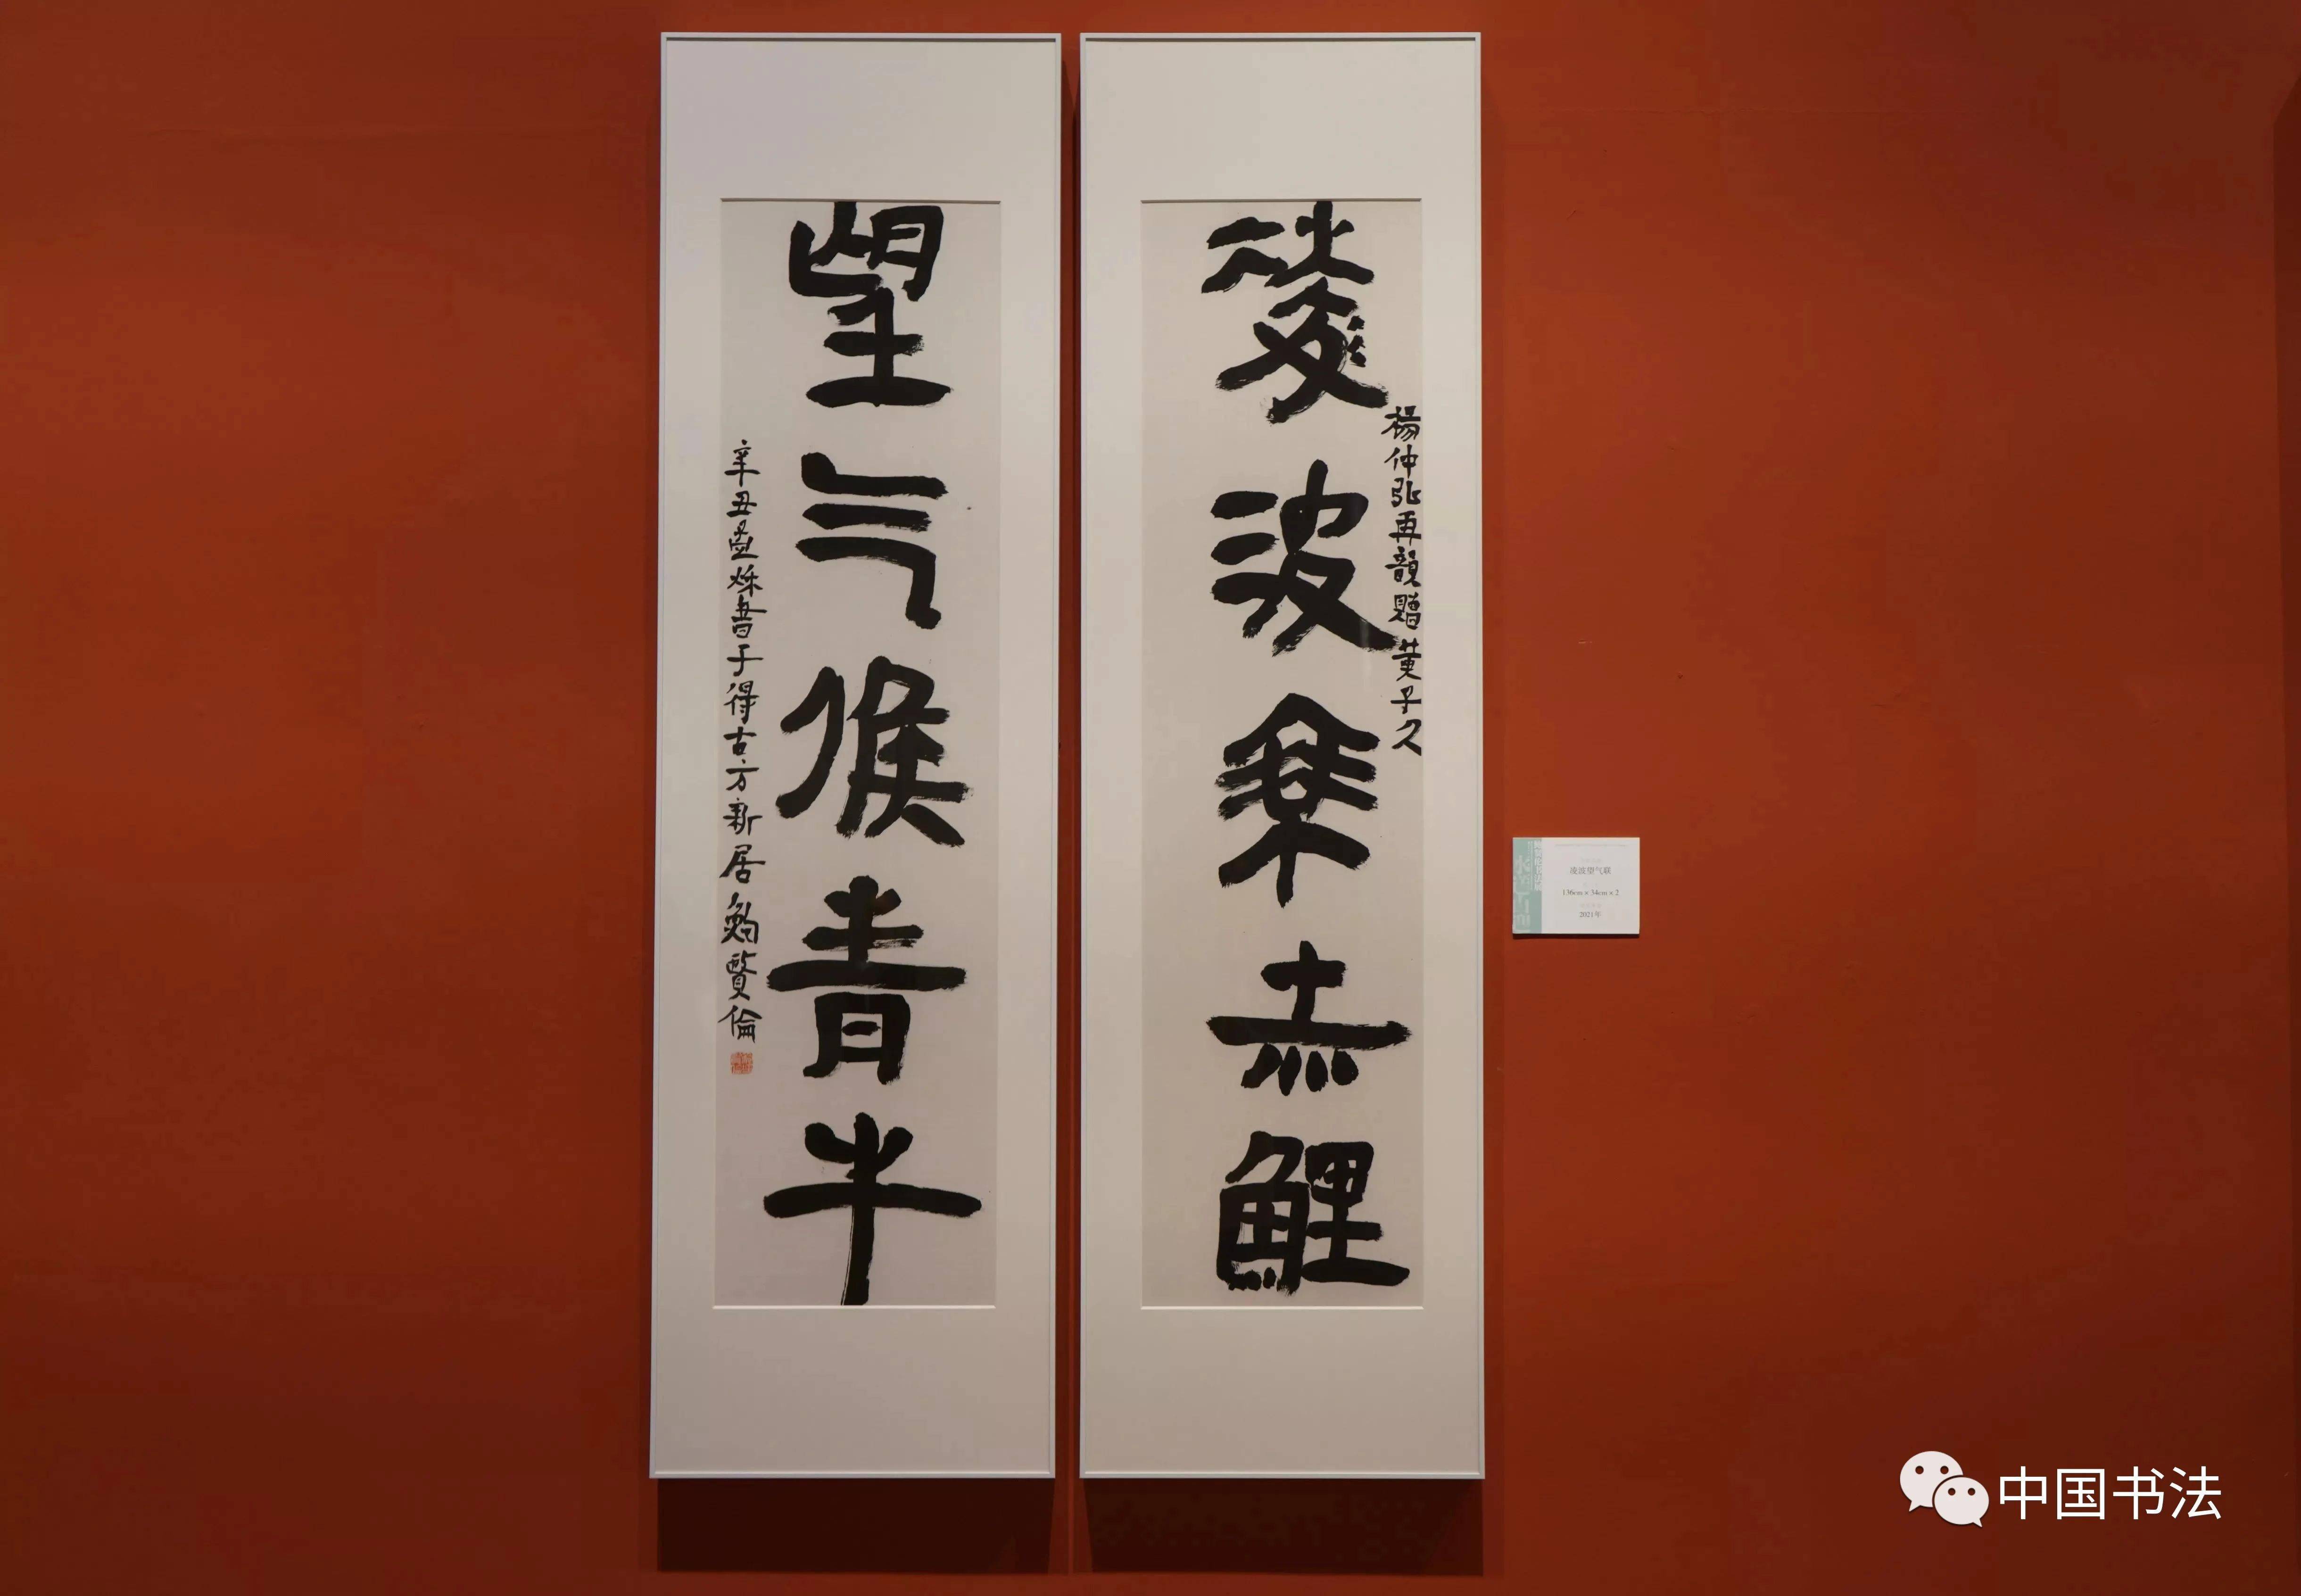 淩波乘赤鯉
楊仲弘再韻贈黄子久
望气候青牛
辛丑孟秌書于得古方新居鮑賢倫
凌波望气联
136cm×34cm×2
2021年
中国书法